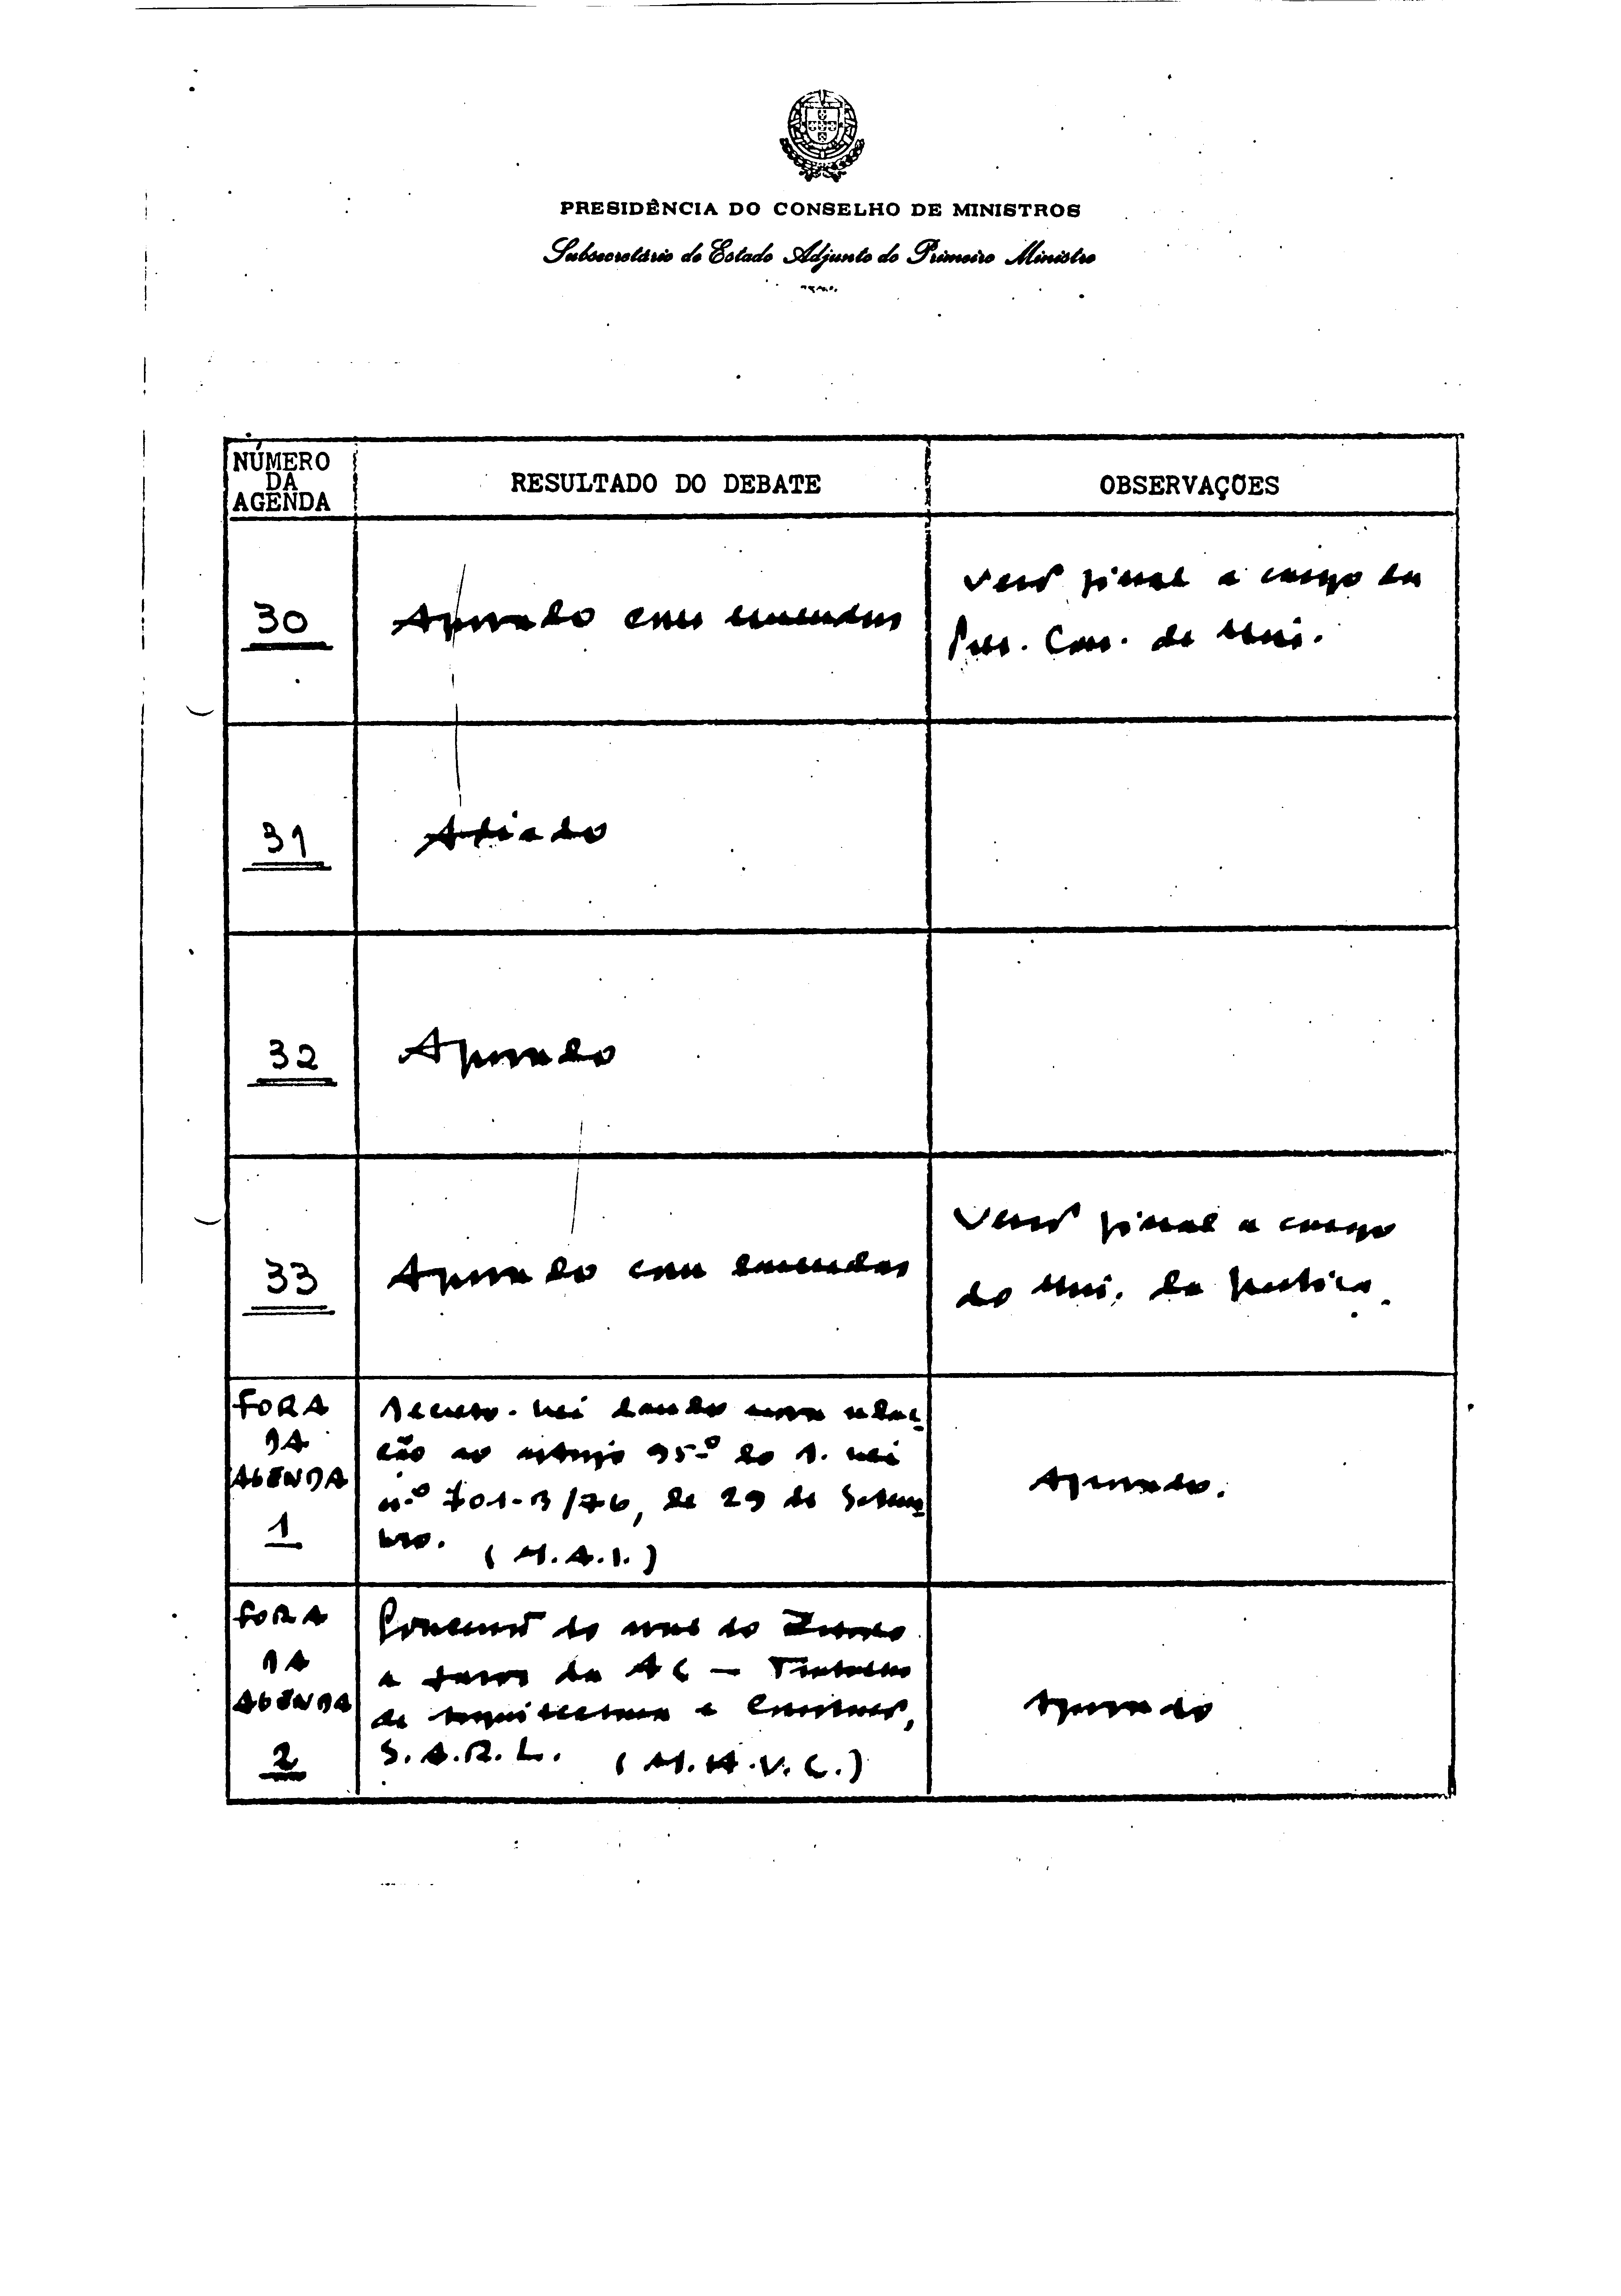 PRESIDÊNCIA DO CONSELHO DE MINISTROS
Subsecretário de Estado Adjunto do Primeiro Ministro
NÚMERO
DA
AGENDA
RESULTADO DO DEBATE
OBSERVAÇÕES
30
Aprovado com emendas
Versão final a cargo da
Pres. Cons. de Min.
31
Adiado
32
Aprovado
33
Aprovado com emendas
Versão final a cargo
do Min. da Justiça.
FORA
DA
AGENDA
1
Decreto-Lei dando nova redac
ção ao artigo 95.º do D. Lei
n.º 701-B/76, de 29 de Setem
bro. (M.A.I.)
Aprovado.
FORA
DA
AGENDA
2
Concessão do aval do Estado
a favor da AC - Trabalhos
de Arquitectura e Construção,
S.A.R.L. (M.H.U.C.)
Aprovado